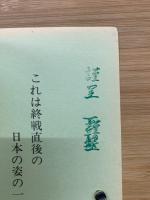 謹呈
これは終戦直後の
日本の姿の一